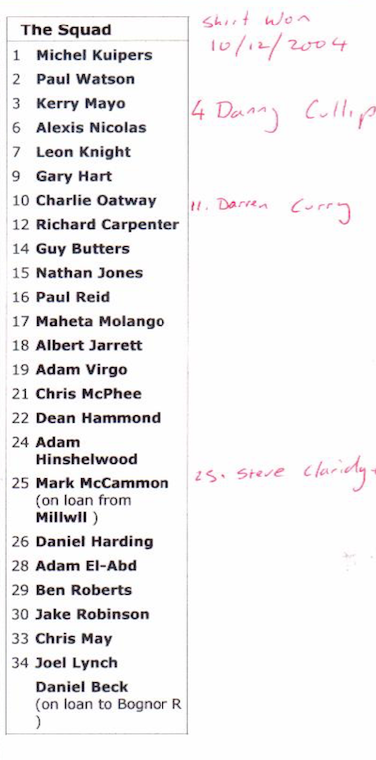 The Squad
shirt won
10/12/2004
1 Michel Kuipers
2 Paul Watson
3 Kerry Mayo
4 Danny Cullip
6 Alexis Nicolas
7 Leon Knight
9 Gary Hart
10 Charlie Oatway
11. Darren Curry
12 Richard Carpenter
14 Guy Butters
15 Nathan Jones
16 Paul Reid
17 Maheta Molango
18 Albert Jarrett
19 Adam Virgo
21 Chris McPhee
22 Dean Hammond
24 Adam
Hinshelwood
25 Mark McCammon
(on loan from
Millwll )
25. Steve Claridge
26 Daniel Harding
28 Adam El-Abd
29 Ben Roberts
30 Jake Robinson
33 Chris May
34 Joel Lynch
Daniel Beck
(on loan to Bognor R
)